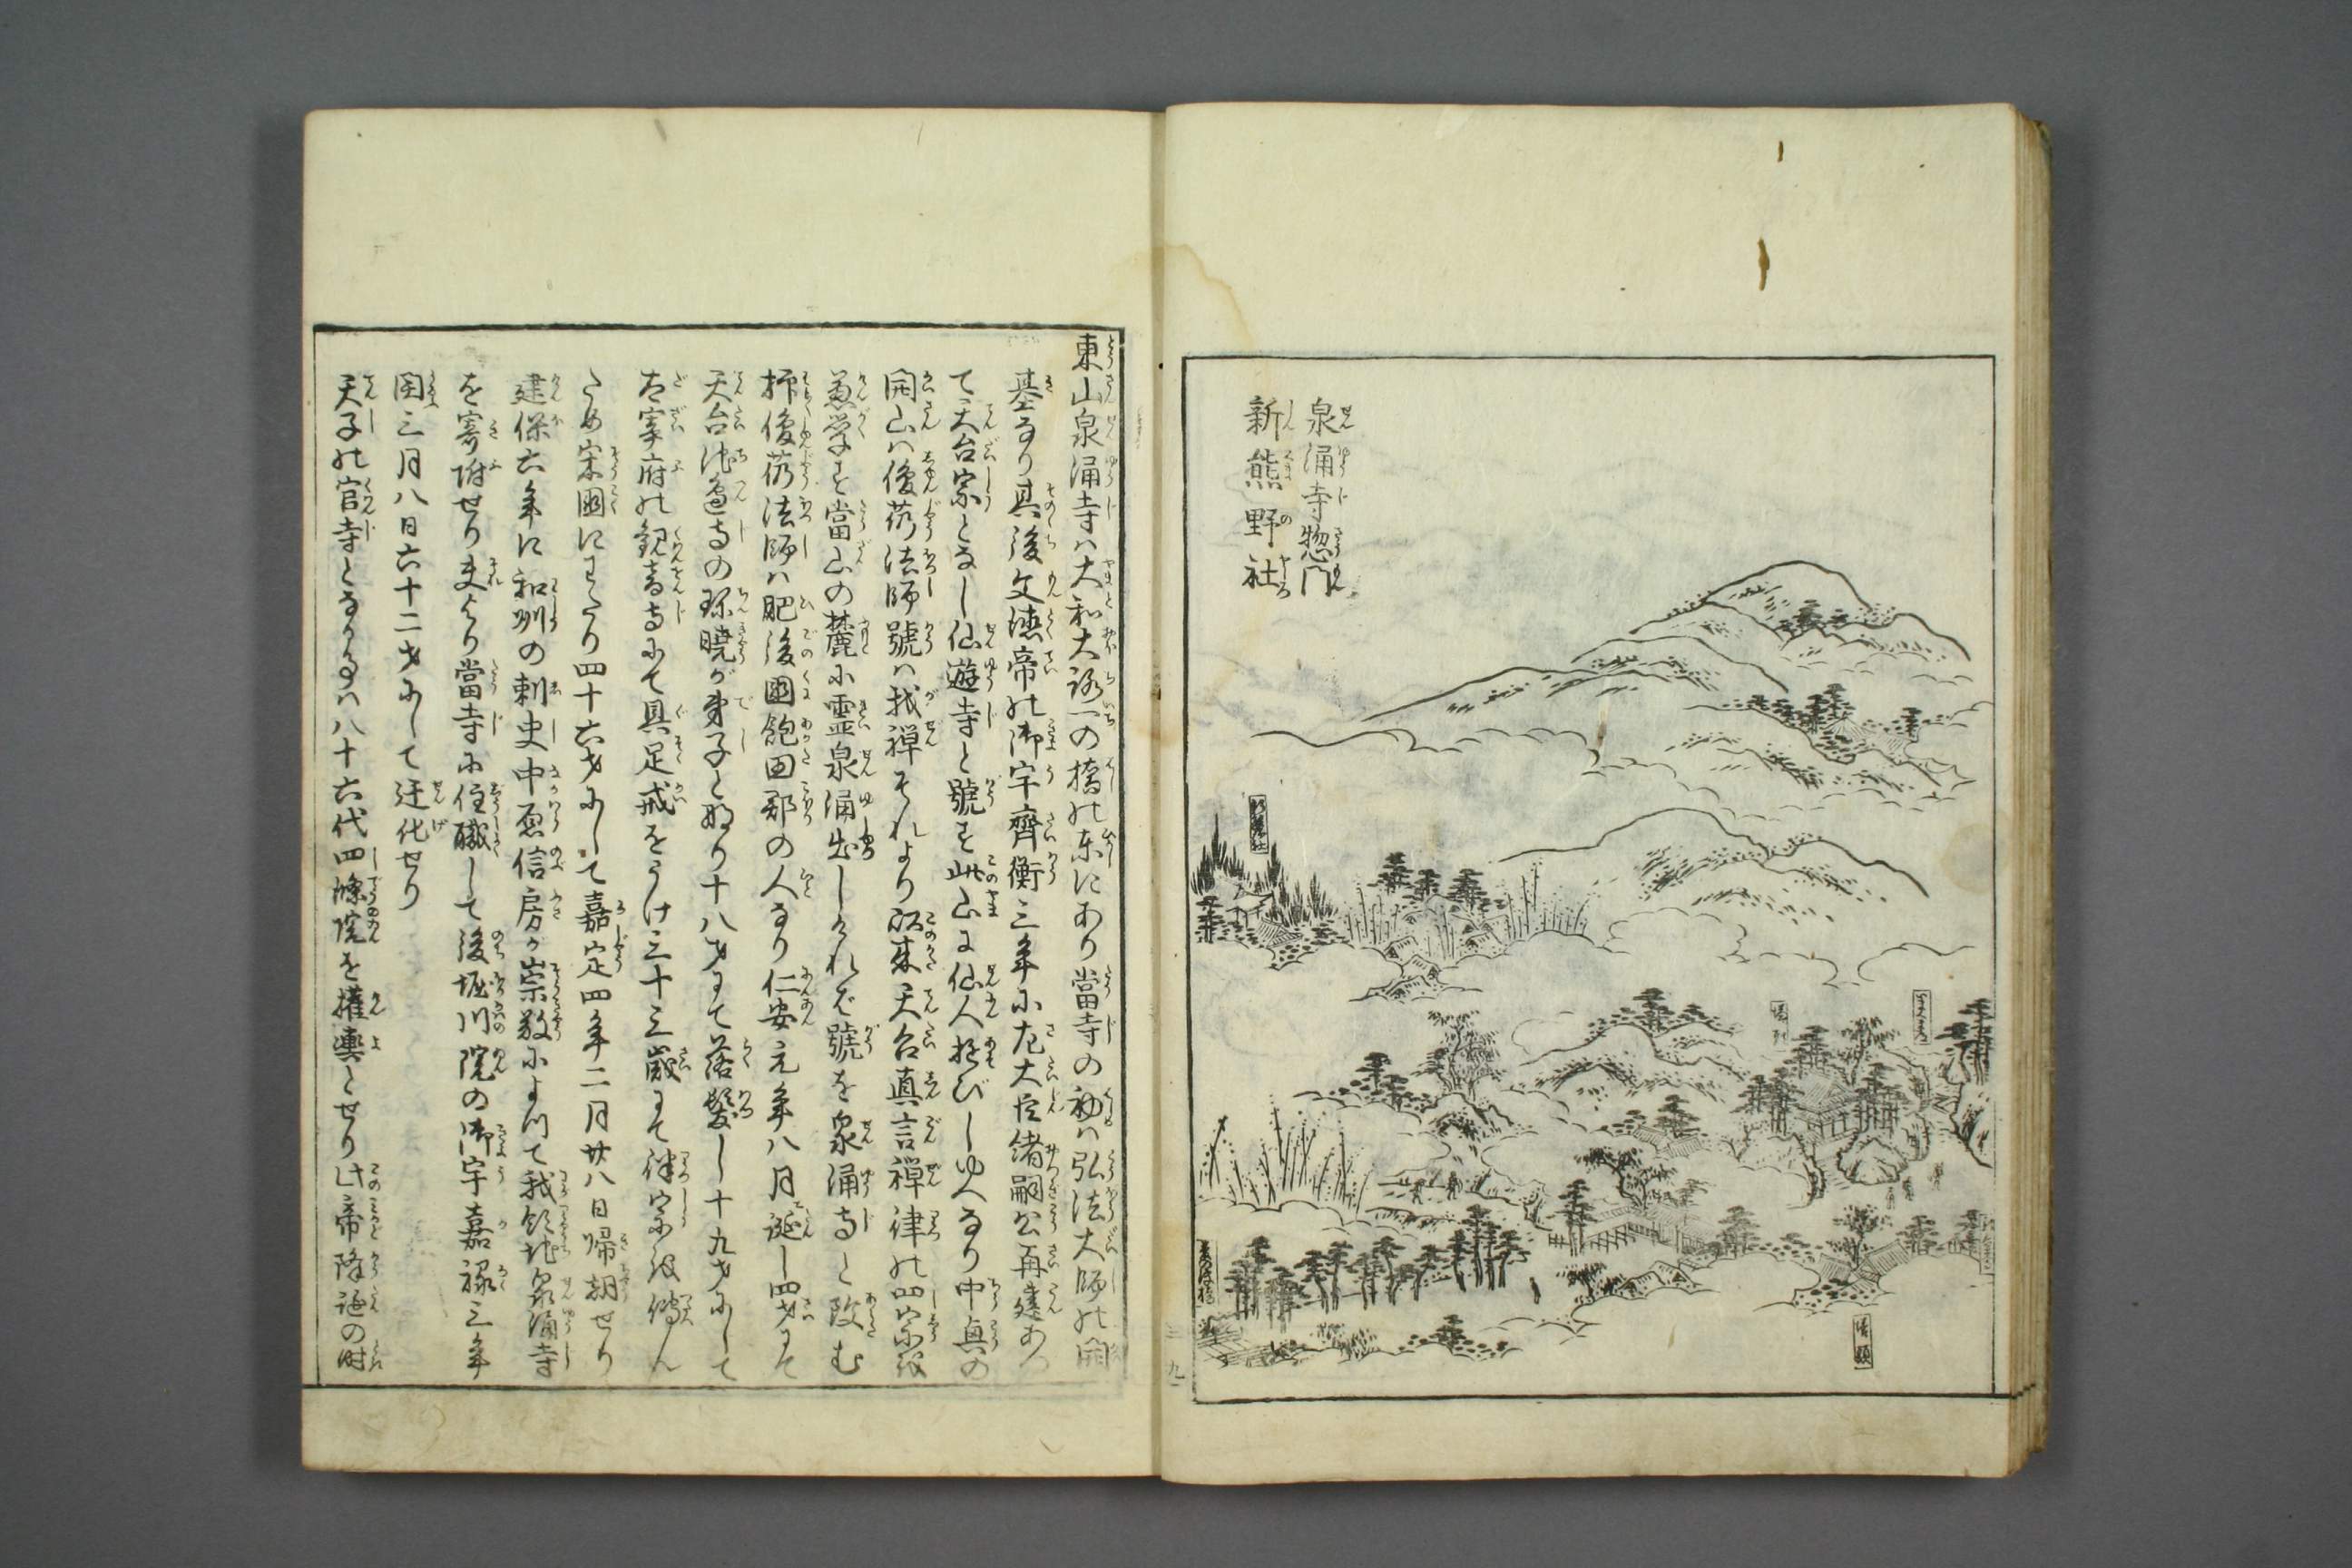 泉涌寺惣門
新熊野社
東山泉涌寺ハ大和大路一の橋の東にあり當寺の初ハ弘法大師の開
基なり其後文徳帝の御宇齊衡三年に左大臣緒嗣公再建あつ
て天台宗となし仙遊寺と號す此山に仙人遊びしゆへなり中興の
開山ハ俊芿法師號ハ我禅それより以来天台真言禅律の四宗を
兼学す當山の麓に霊泉涌出しけれバ號を泉涌寺と改む
抑俊芿法師ハ肥後國飽田郡の人なり仁安元年八月誕し四才にて
天台池邉寺の珎暁が弟子と成り十八才にて落髪し十九才にして
太宰府の観音寺にて具足戒をうけ三十三歳にて律宗を傳ん
ため宋國にわたり四十六才にして嘉定四年二月廿八日帰朝せり
建保六年に和州の刺史中原信房が崇敬によつて我領地泉涌寺
を寄附せり夫より當寺に住職して後堀川院の御宇嘉禄三年
閏三月八日六十二才にして迁化せり
天子の官寺となりぬるハ八十六代四條院を権輿とせり此帝降誕の時